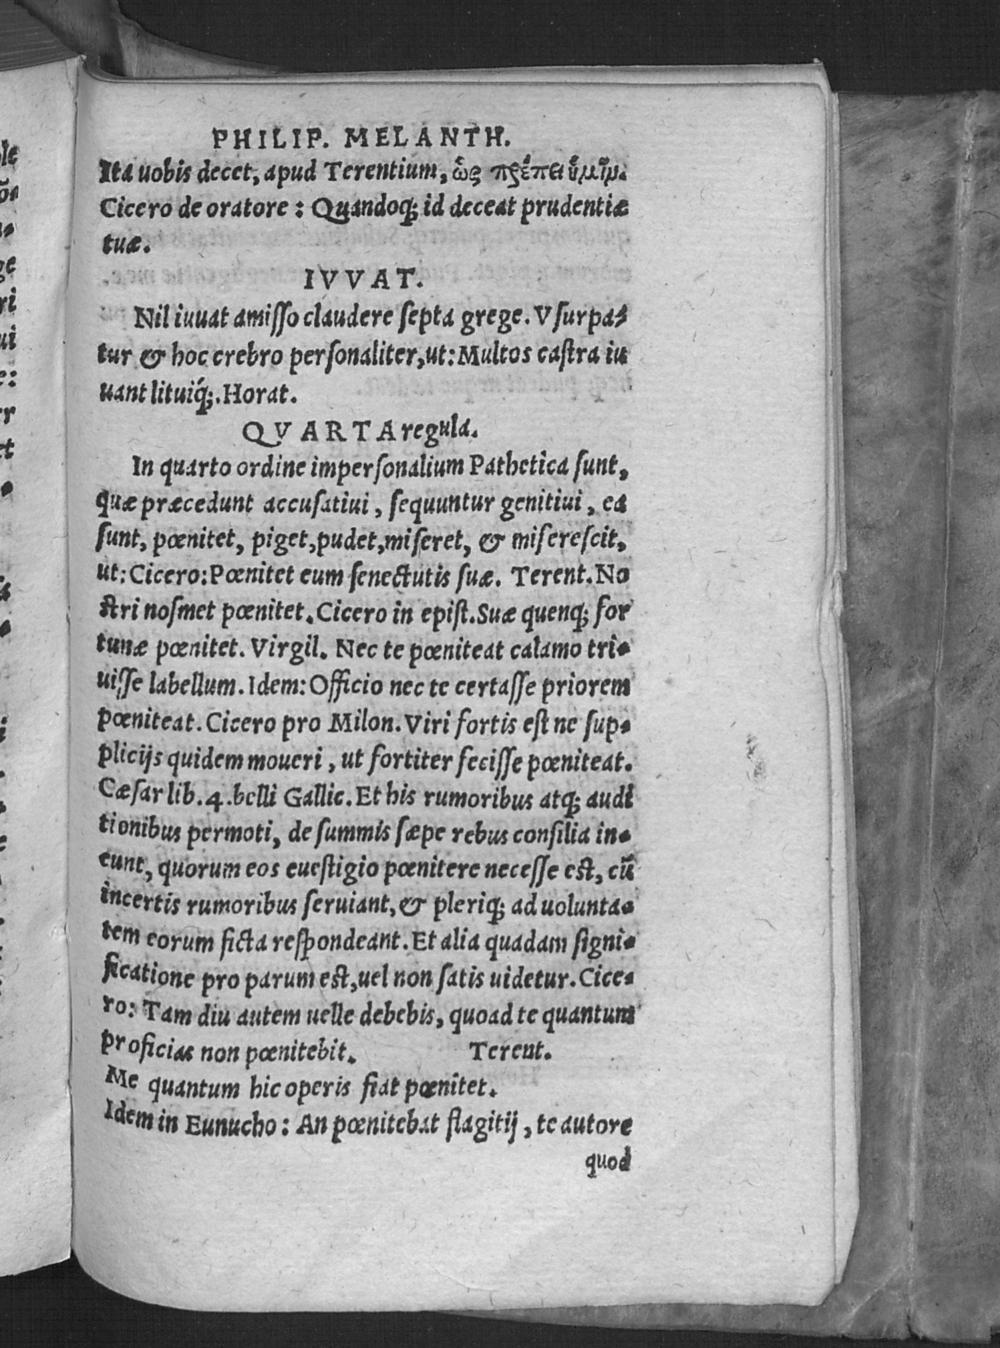 PHILIP. MELANTH.
Ita uobis decet, apud Terentium, ὡς πρέπει ὑμῖν.
Cicero de oratore: Quandoq; id deceat prudentiæ
tuæ.
IVVAT.
Nil iuuat amisso claudere septa grege. Vsurpa-
tur & hoc crebro personaliter, ut: Multos castra iu
uant lituiq́;. Horat.
QVARTA regula.
In quarto ordine impersonalium Pathetica sunt,
quæ præcedunt accusatiui, sequuntur genitiui, ea
sunt, pœnitet, piget, pudet, miseret, & miserescit,
ut: Cicero: Pœnitet eum senectutis suæ. Terent. No
stri nosmet pœnitet. Cicero in epist. Suæ quenq; for
tunæ pœnitet. Virgil. Nec te pœniteat calamo tri-
uisse labellum. Idem: Officio nec te certasse priorem
pœniteat. Cicero pro Milon. Viri fortis est ne sup-
plicijs quidem moueri, ut fortiter fecisse pœniteat.
Cæsar lib. 4. belli Gallic. Et his rumoribus atq; audi
tionibus permoti, de summis sæpe rebus consilia in-
eunt, quorum eos euestigio pœnitere necesse est, cũ
incertis rumoribus seruiant, & pleriq; ad uolunta-
tem eorum ficta respondeant. Et alia quadam signi-
ficatione pro parum est, uel non satis uidetur. Cice-
ro: Tam diu autem uelle debebis, quoad te quantum
proficias non pœnitebit. Terent.
Me quantum hic operis fiat pœnitet.
Idem in Eunucho: An pœnitebat flagitij, te autore
quod